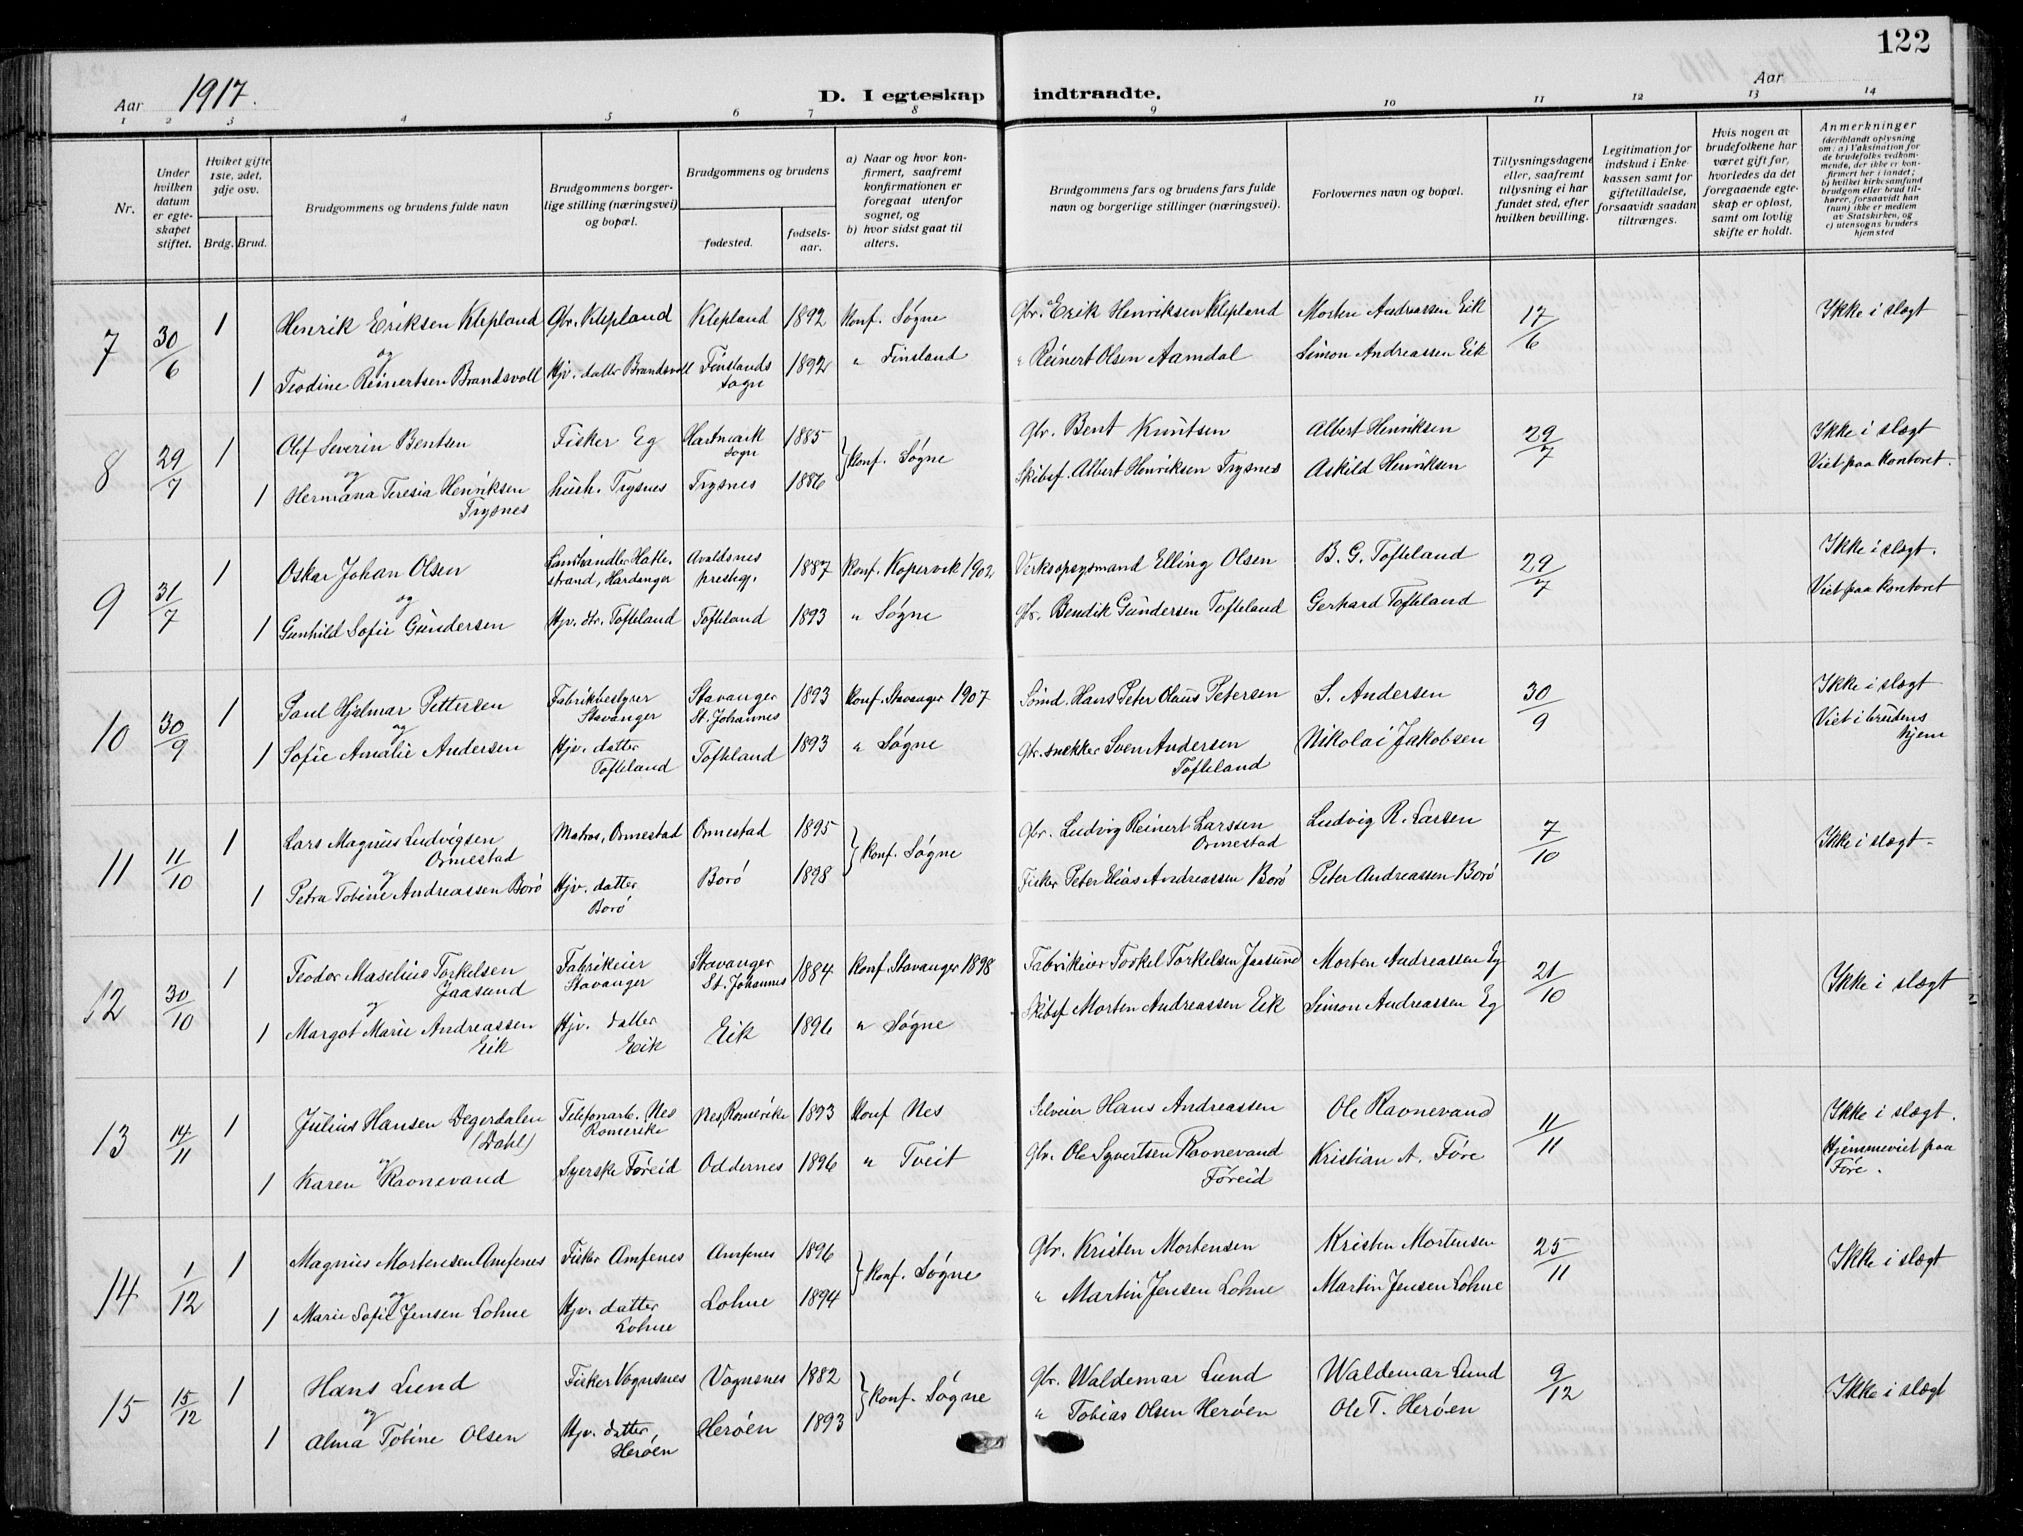 122
Aar 1917.
D. I egteskap indtraadte.
Aar
1 2 3 4 5 6 7 8 9 10 11 12 13 14
Nr.
Under hvilken datum er egteskapet stiftet.
Hviket gifte 1ste, 2det, 3dje osv.
Brdg. Brud.
Brudgommens og brudens fulde navn
Brudgommens borgerlige stilling (næringsvei) og bopæl.
Brudgommens og brudens
fødested.
fødselsaar.
a) Naar og hvor konfirmert, saafremt konfirmationen er foregaat utenfor sognet, og
b) hvor sidst gaat til alters.
Brudgommens fars og brudens fars fulde navn og borgerlige stillinger (næringsvei).
Forlovernes navn og bopæl.
Tillysningsdagene eller, saafremt tillysning ei har fundet sted, efter hvilken bevilling.
Legitimation for indskud i Enkekassen samt for giftetilladelse, forsaavidt saadan tiltrænges.
Hvis nogen av brudefolkene har været gift før, hvorledes da det foregaaende egteskap er opløst, samt om lovlig skifte er holdt.
Anmerkninger (deriblandt oplysning om: a) Vaksination for de brudefolks vedkommende, der ikke er konfirmert her i landet; b) hvilket kirkesamfund brudgom eller brud tilhører, forsaavidt han (hun) ikke er medlem av Statskirken, og c) utensogns bruders hjemsted
7 30/6 1 Henrik Eriksen Klepland Gbr. Klepland Klepland 1892 Konf. Søgne Gbr. Erik Henriksen Klepland Morten Andreassen Eik 17/6 Ikke i slægt
og
1 Teodine Reinertsen Brandsvoll Hjv. datter Brandsvoll Finslands sogn 1892 " Finsland " Reinert Olsen Aamdal Simon Andreassen Eik
8 29/7 1 Olef Severin Bentsen Fisker Eg Hartmark sogn 1885 } Konf. Søgne Gbr. Bent Knutsen Albert Henriksen 29/7 Ikke i slægt
og
1 Hermana Teresia Henriksen Trysnes hush. Trysnes Trysnes 1886 Skibsf. Albert Henriksen Trysnes Askild Henriksen Viet paa kontoret.
9 31/7 1 Oskar Johan Olsen Landhandler Hatlestrand, Hardanger Avaldsnes prestegj. 1887 Konf. Kopervik 1902 Verksopsysmand Elling Olsen B. G. Tofteland 29/7 Ikke i slægt.
og
1 Gunhild Sofie Gundersen Hjv. dtr. Tofteland Tofteland 1893 " Søgne Gbr. Bendik Gundersen Tofteland Gerhard Tofteland Viet paa kontoret
10 30/9 1 Paul Hjalmar Pettersen Fabrikbestyrer Stavanger Stavanger St. Johannes 1893 Konf. Stavanger 1907 Sømd. Hans Peter Olaus Petersen S. Andersen 30/9 Ikke i slægt
og
1 Sofie Amalie Andersen Hjv. datter Tofteland Tofteland 1893 " Søgne Gbr. snekker Sven Andersen Tofteland Nikolai Jakobsen Viet i brudens hjem
11 11/10 1 Lars Magnus Ludvigsen Ormestad Matros, Ormestad Ormestad 1895 } Konf. Søgne Gbr. Ludvig Reinert Larssen Ormestad Ludvig R. Larsen 7/10 Ikke i slægt.
og
1 Petra Tobine Andreassen Borø Hjv. datter Borø Borø 1898 Fisker Peter Elias Andreassen Borø Peter Andreassen Borø
12 30/10 1 Teodor Maselius Torkelsen Jaasund Fabrikeier Stavanger Stavanger St. Johannes 1884 Konf. Stavanger 1898 Fabrikeier Torkel Torkelsen Jaasund Morten Andreassen Eg 21/10 Ikke i slægt
og
1 Margot Marie Andreassen Eik Hjv. datter Eik Eik 1896 " Søgne Skibsf Morten Andreassen Eik Simon Andreassen Eg
13 14/11 1 Julius Hansen Degerdalen (Dahl) Telefonarb. Nes Romerike Nes, Romerike 1893 Konf Nes Selveier Hans Andreassen Ole Ravnevand 11/11 Ikke i slægt.
og
1 Karen Ravnevand Syerske Føreid Oddernes 1896 " Tveit Gbr. Ole Syvertsen Ravnevand Føreid Kristian A. Føre Hjemmeviet paa Føre.
14 1/12 1 Magnus Mortensen Amfenes Fisker Amfenes Amfenes 1896 } Konf. Søgne Gbr. Kristen Mortensen Kristen Mortensen 25/11 Ikke i slægt
og
1 Marie Sofie Jensen Lohne Hjv. datter Lohne Lohne 1894 " Martin Jensen Lohne Martin Jensen Lohne
15 15/12 1 Hans Lund Fisker Vognsnes Vognsnes 1882 } Konf. Søgne Gbr. Waldemar Lund Waldemar Lund 9/12 Ikke i slægt
og
1 Alma Tobine Olsen Hjv. datter Herøen Herøen 1893 " Tobias Olsen Herøen Ole T. Herøen